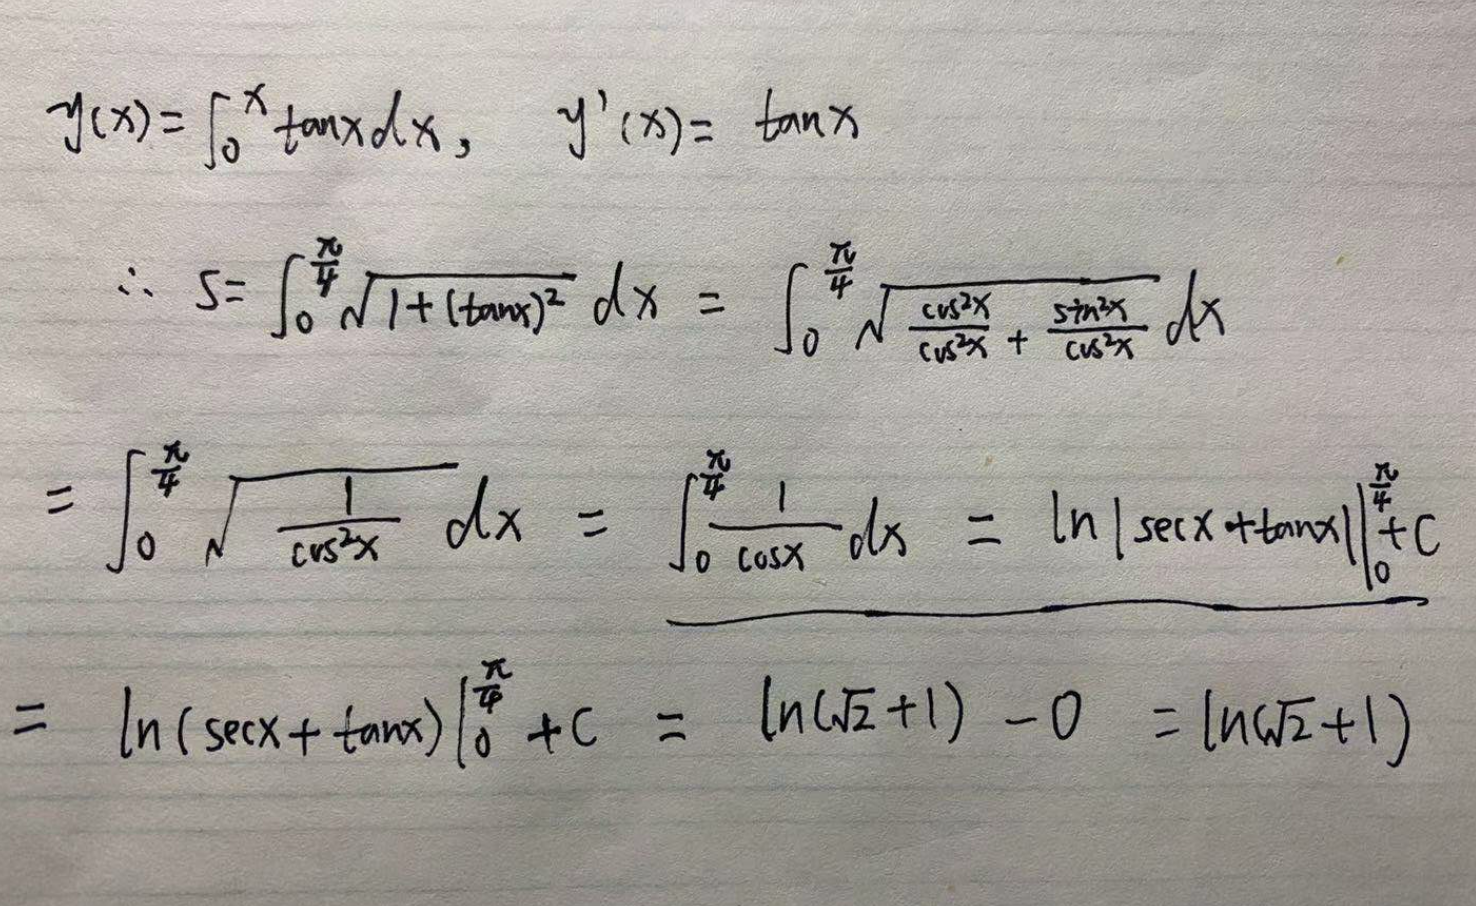 y(x) = ∫₀ˣ tanx dx, y'(x) = tanx
∴ s = ∫₀^(π/4) √(1+(tanx)²) dx = ∫₀^(π/4) √(cos²x/cos²x + sin²x/cos²x) dx
= ∫₀^(π/4) √(1/cos²x) dx = ∫₀^(π/4) 1/cosx dx = ln|secx+tanx| |₀^(π/4) + C
= ln(secx+tanx)|₀^(π/4) + C = ln(√2+1) - 0 = ln(√2+1)